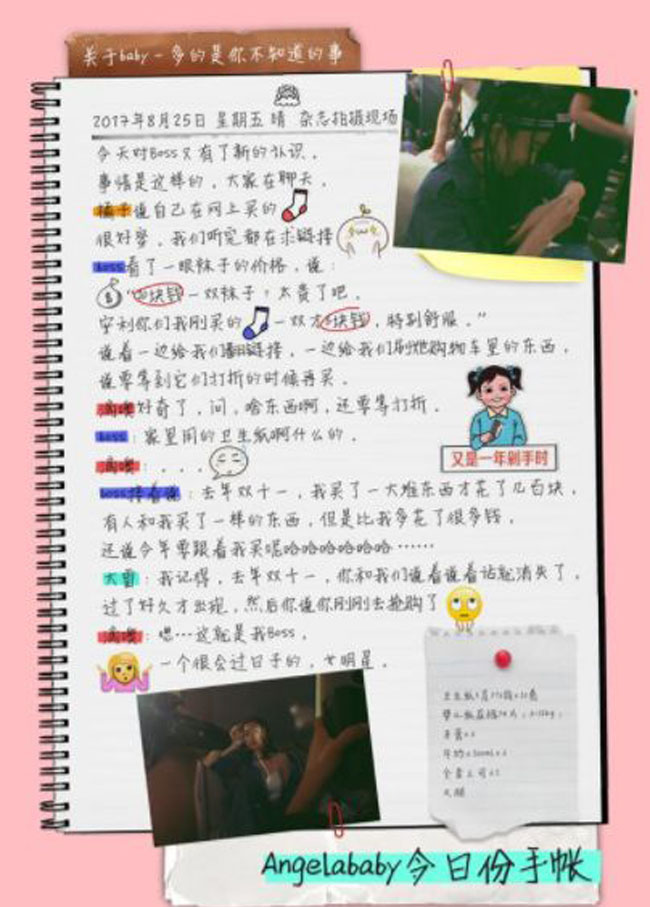 关于baby-多的是你不知道的事
2017年8月25日 星期五 晴 杂志拍摄现场
今天对Boss又有了新的认识。
事情是这样的，大家在聊天。
橘子说自己在网上买的
很好穿，我们听完都在求链接
boss看了一眼袜子的价格，说：
块钱一双袜子？太贵了吧。
安利你们我刚买的 一双才 块钱，特别舒服。”
说着一边给我们翻链接，一边给我们刷她购物车里的东西，
说要等到它们打折的时候再买。
好奇了，问，啥东西啊，还要等打折。
boss：家里用的卫生纸啊什么的。
：...
又是一年剁手时
boss接着说：去年双十一，我买了一大堆东西才花了几百块，
有人和我买了一样的东西，但是比我多花了很多钱，
还说今年要跟着我买呢哈哈哈哈哈哈……
大雪：我记得，去年双十一，你和我们说着说着话就消失了，
过了好久才出现，然后你说你刚刚去抢购了
：嗯…这就是我Boss，
一个很会过日子的，女明星。
牙膏x2
火腿
Angelababy今日份手帐